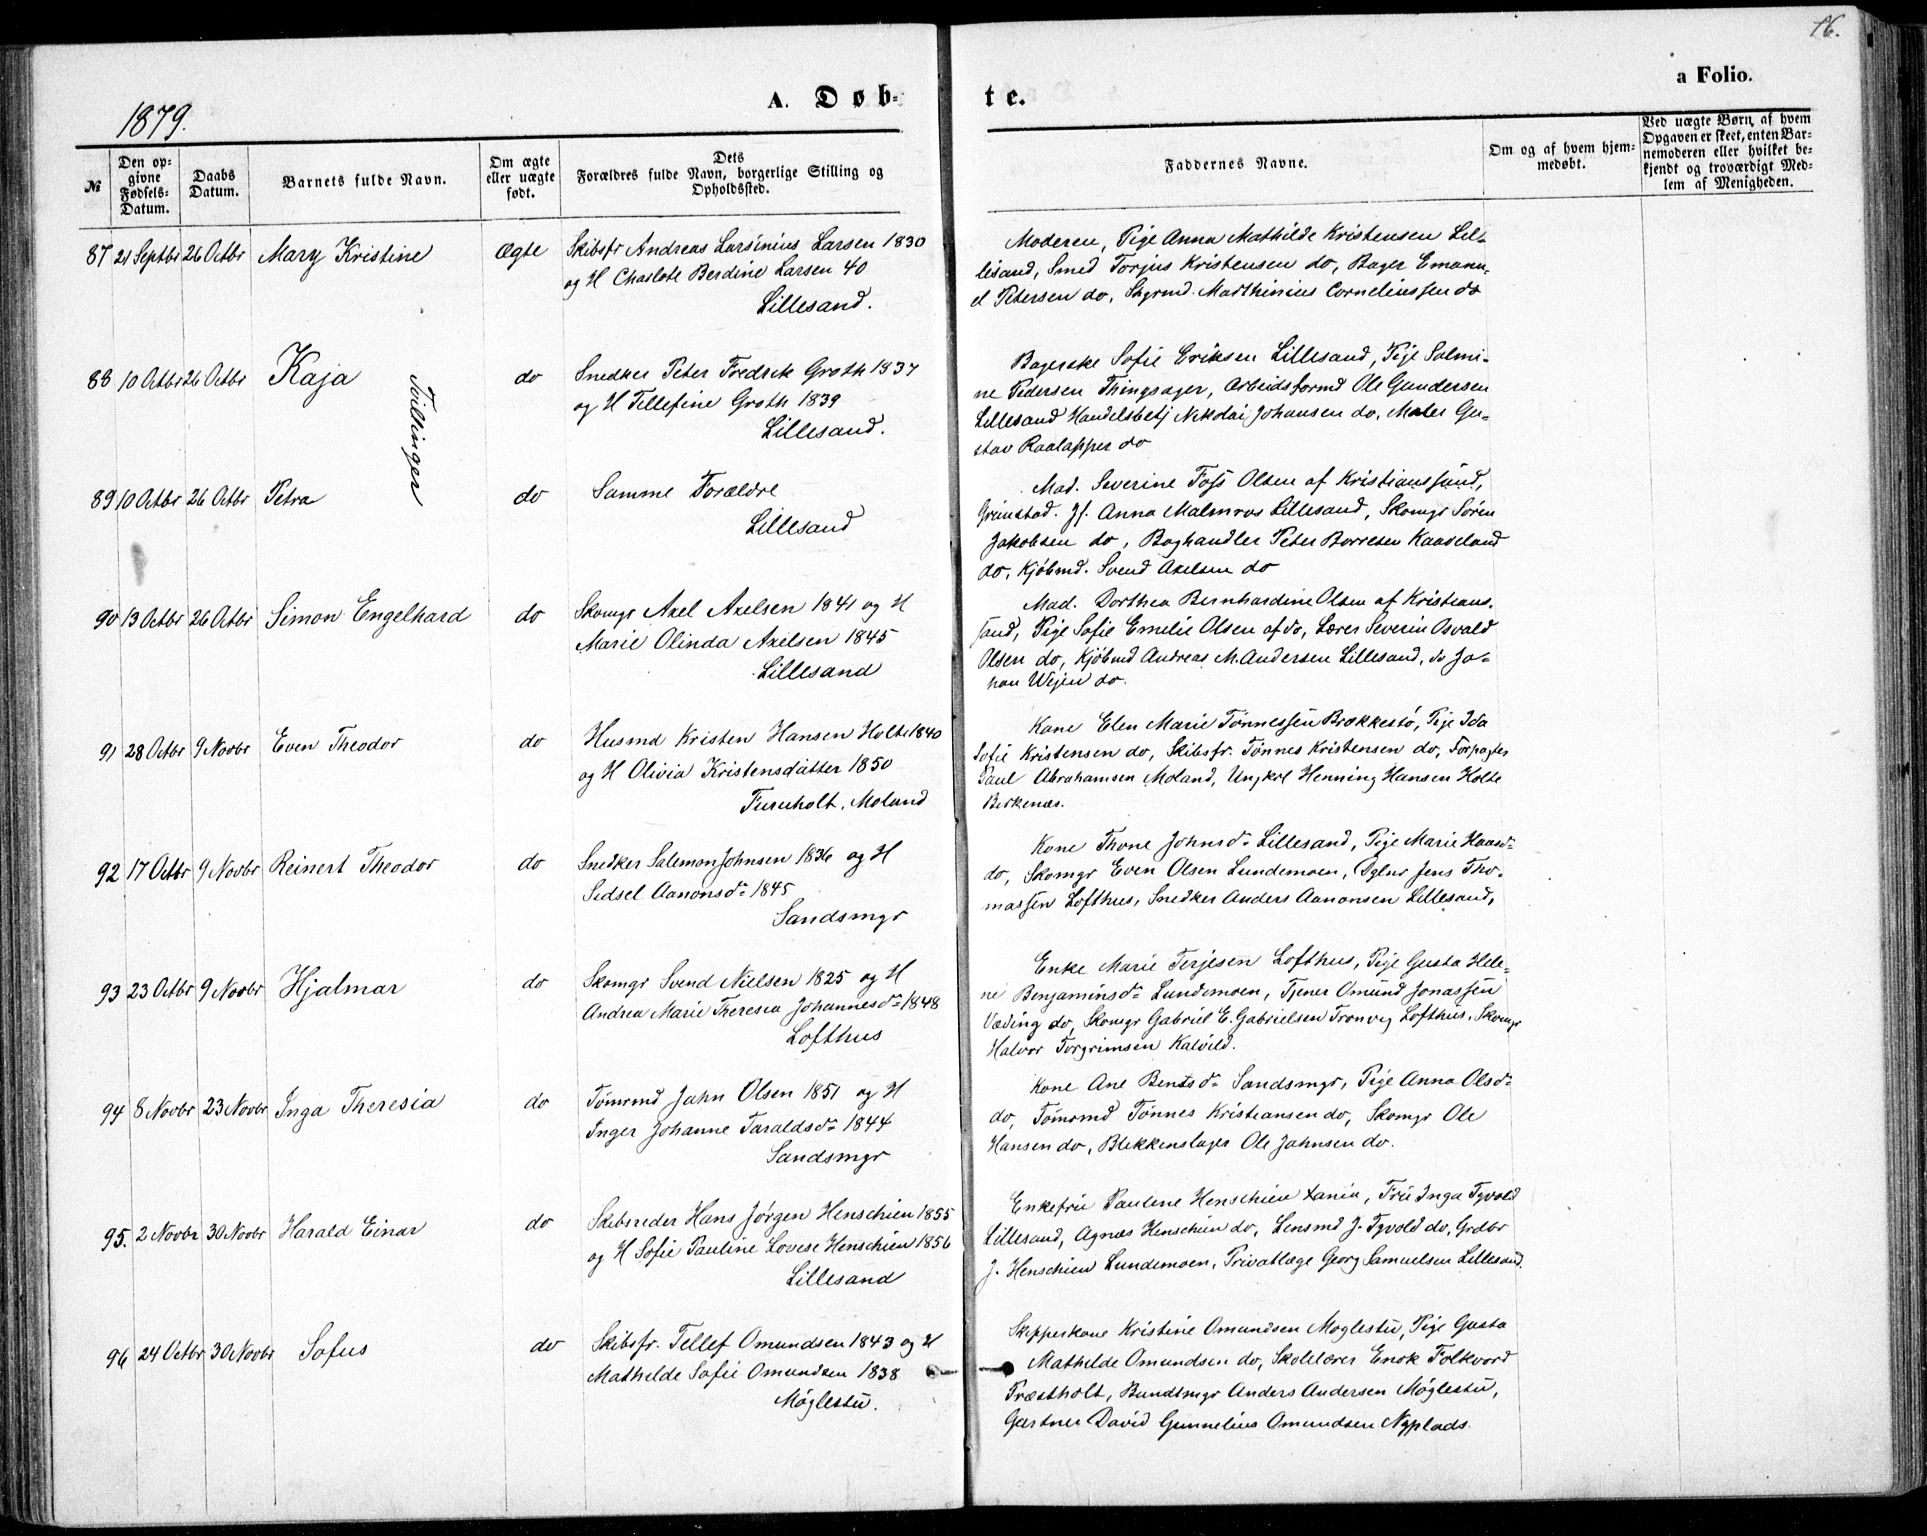 16.
a Folio.
1879.
A. Døb-
te.
№
Den op-
givne
Fødsels-
Datum.
Daabs
Datum.
Barnets fulde Navn.
Om ægte
eller uægte
født.
Dets
Forældres fulde Navn, borgerlige Stilling og
Opholdssted.
Faddernes Navne.
Om og af hvem hjem-
medøbt.
Ved uægte Børn, af hvem
Opgaven er skeet, enten Bar-
nemoderen eller hvilket be-
kjendt og troværdigt Med-
lem af Menigheden.
87 21 Septbr 26 Octbr Mary Kristine Ægte Skibsfr Andreas Larsinius Larsen 1830
og H Charlote Berdine Larsen 40
Lillesand.
Moderen, Pige Anna Mathilde Kristensen Lil-
lesand, Smed Torjus Kristensen do, Bager Emanu-
el Petersen do, Sagmd. Marthinius Corneliussen do
88 10 Octbr 26 Octbr Kaja do Snedker Peter Fredrik Groth 1837
og H Tellefine Groth 1839
Lillesand.
Tvillinger
Bagerske Sofie Eriksen Lillesand, Pige Salmi-
ne Pedersen Thingsager, Arbeidsformd Ole Gundersen
Lillesand Handelsbetj Nikolai Johansen do, Maler Gu-
stav Raalapper do
89 10 Octbr 26 Octbr Petra do Samme Forældre
Lillesand
Mad. Severine Foss Olsen af Kristianssund,
Grimstad. Jf. Anna Malmros Lillesand, Skomgr Søren
Jakobsen do, Boghandler Peter Borresen Kaaveland
do, Kjøbmd. Svend Axelsen do
90 13 Octbr 26 Octbr Simon Engelhard do Skomgr Axel Axelsen 1841 og H
Marie Olinda Axelsen 1845
Lillesand
Mad. Dorthea Bernhardine Olsen af Kristians-
sand, Pige Sofie Emelie Olsen af do, Lærer Severin Osvald
Olsen do, Kjøbmd Andreas M. Andersen Lillesand, do Jo-
han Wejen do.
91 28 Octbr 9 Novbr Even Theodor do Husmd Kristen Hansen Holte 1840
og H Olivia Kristensdatter 1850
Furuholt, Moland
Kone Elen Marie Tønnessen Brækkestø, Pige Ida
Sofie Kristensen do, Skibsfr. Tønnes Kristensen do, Forpagter
Paul Abrahamsen Moland, Ungkrl Henning Hansen Holte
Birkenæs.
92 17 Octbr 9 Novbr Reinert Theodor do Snedker Salemon Johnsen 1836 og H
Sidsel Aanonsdr 1845
Sandsmgr
Kone Thone Johnsdr Lillesand, Pige Marie Haasdr
do, Skomgr Even Olsen Lundemoen, Jens Tho-
massen Lofthus, Snedker Anders Aanonsen Lillesand,
93 23 Octbr 9 Novbr Hjalmar do Skomgr Svend Nielsen 1825 og H
Andrea Marie Theresia Johannesdr 1848
Lofthus
Enke Marie Terjesen Lofthus, Pige Gusta Hele-
ne Benjaminsdr Lundemoen, Tjener Omund Jonassen
Væding do, Skomgr Gabriel E. Gabrielsen Tronvig Lofthus, Skomgr
Halvor Torgrimsen Kalvild.
94 8 Novbr 23 Novbr Inga Theresia do Tømrmd John Olsen 1851 og H
Inger Johanne Taraldsdr 1844
Sandsmgr
Kone Ane Bentsdr Sandsmgr, Pige Anna Olsdr
do, Tømrmd Tønnes Kristiansen do, Skomgr Ole
Hansen do, Blikkenslager Ole Johnsen do.
95. 2 Novbr 30 Novbr Harald Einar do Skibsreder Hans Jørgen Henschien 1855
og H Sofie Pauline Lovise Henschien 1856
Lillesand
Enkefru Pauline Henschien Xania, Fru Inga Tyvold
Lillesand, Agnæs Henschien do, Lensmd J. Tyvold do, Grdbr
J. Henschien Lundemoen, Privatlæge Georg Samuelsen Lillesand.
96 24 Octbr 30 Novbr Sofus do Skibsfr. Tellef Omundsen 1843 og H
Mathilde Sofie Omundsen 1838
Møglestu.
Skipperkone Kristine Omundsen Moglestu, Pige Gusta
Mathilde Omundsen do, Skolelærer Enok Folkvord
Træstholt, Bundtmgr Anders Andersen Møglestu,
Gartner David Gunnelius Omundsen Nyplads.